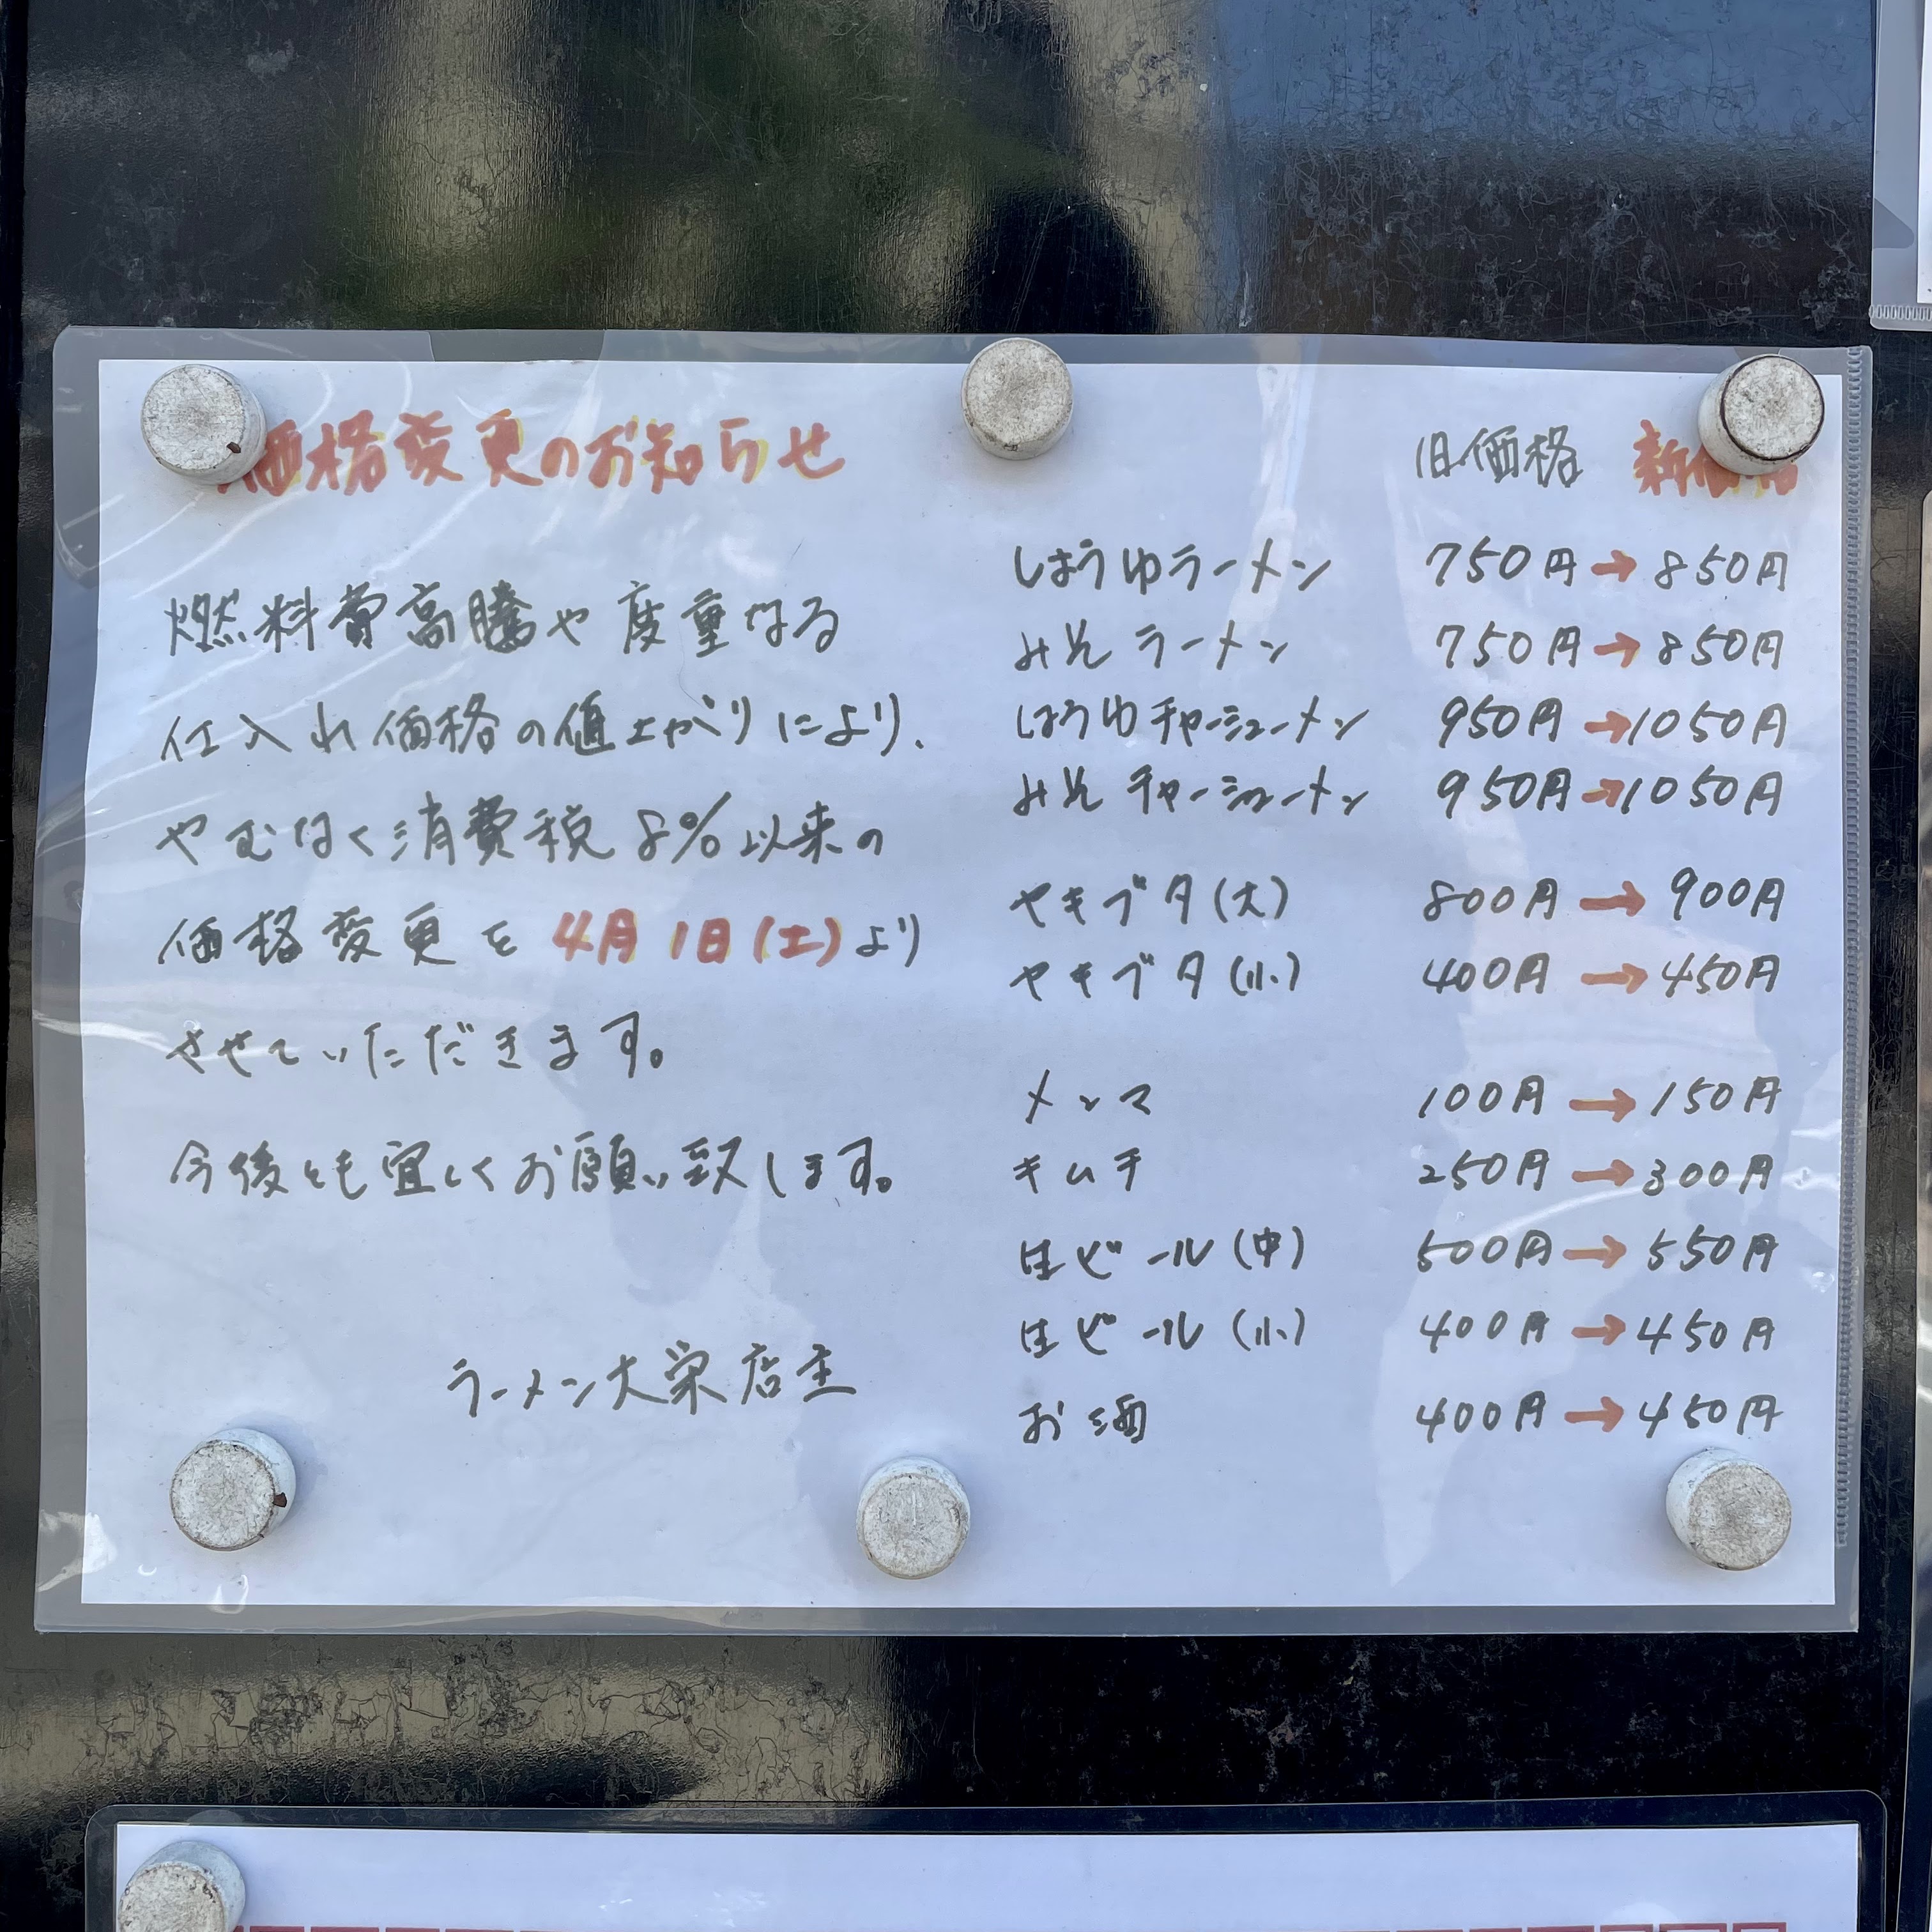 価格変更のお知らせ
燃料費高騰や度重なる
仕入れ価格の値上がりにより、
やむなく消費税8%以来の
価格変更を4月1日(土)より
させていただきます。
今後とも宜しくお願い致します。
ラーメン大栄店主
旧価格 新価格
しょうゆラーメン 750円→850円
みそラーメン 750円→850円
しょうゆチャーシューメン 950円→1050円
みそチャーシューメン 950円→1050円
ヤキブタ(大) 800円→900円
ヤキブタ(小) 400円→450円
メンマ 100円→150円
キムチ 250円→300円
生ビール(中) 500円→550円
生ビール(小) 400円→450円
お酒 400円→450円